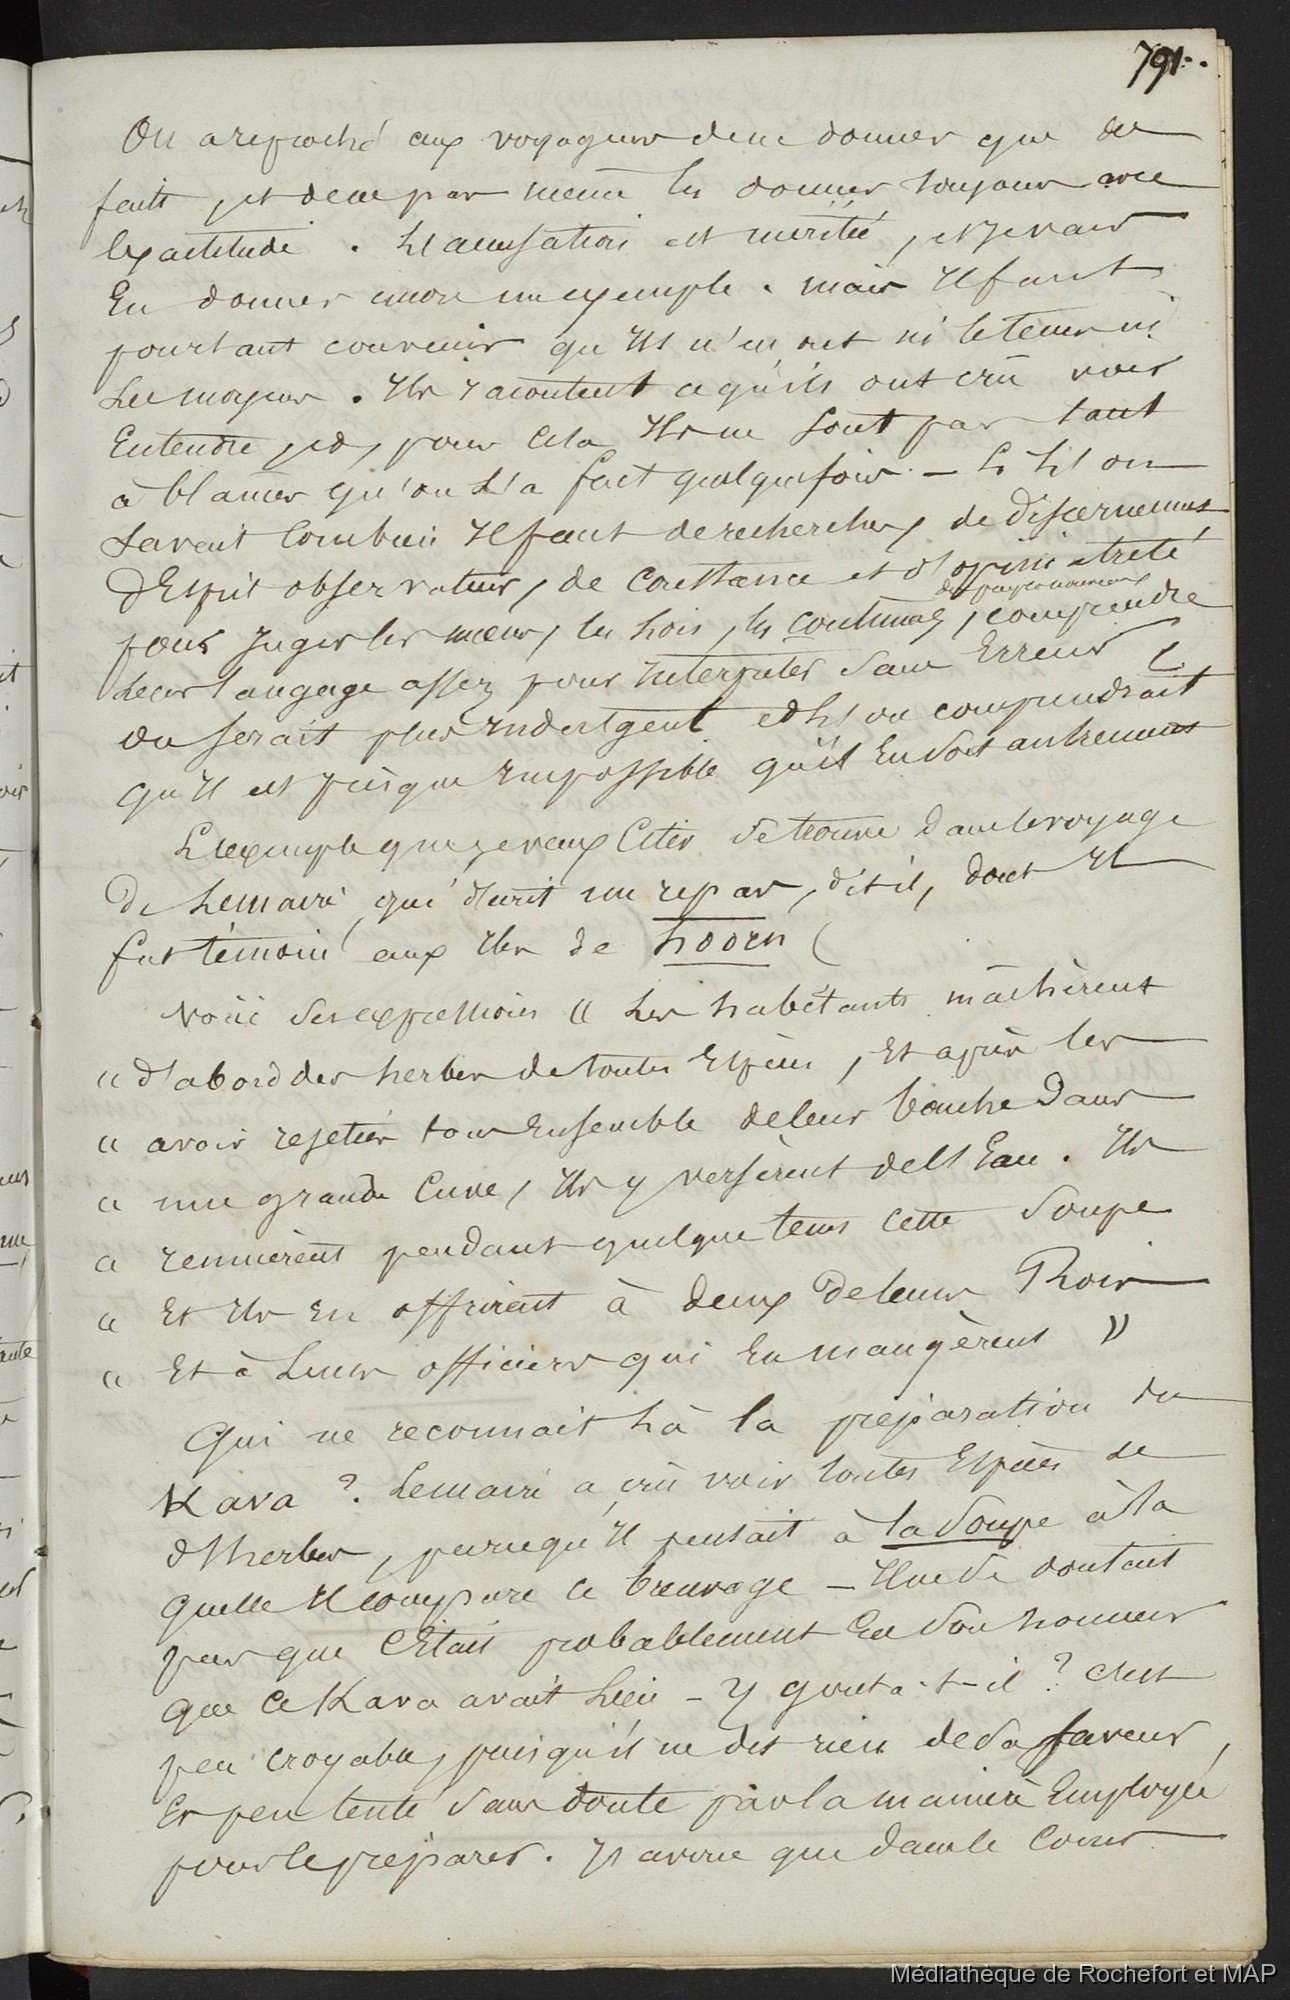 791.
On a reproché aux voyageurs de ne donner que des
faits, et de ne pas même les donner toujours avec
exactitude. L'accusation est méritée, et je vais
En donner encore un exemple. mais Il faut
pourtant convenir qu'Ils n'en ont ni le tems ni
Les moyens. Ils racontent ce qu'ils ont crû voir
Entendre, et, pour cela Ils ne sont pas tant
à blâmer qu'on L'a fait quelquefois. — Si L'on
Savait Combien Il faut de recherches, de discernement
d'Esprit observateur, de Constance et d'opiniatreté
pour Juger les mœurs, les Lois, les coutumes, comprendre
des pays nouveaux
Leur langage assez pour Interpreter sans Erreur
on serait plus Indulgent et L'on comprendrait
qu'Il est presque Impossible qu'il En soit autrement
L'exemple que je veux Citer se trouve dans le voyage
De Lemaire qui décrit un repas, dit il, dont Il
fut témoin aux Iles de hoorn (
Voici ses expressions « Les habitants mâchèrent
« d'abord des herbes de toutes Espèces, Et après les
« avoir rejetées tous Ensemble de leur bouche Dans
« une grande Cuve, Ils y versèrent de L'Eau. Ils
« remuèrent pendant quelque tems cette Soupe
« Et Ils En offrirent à deux de leurs Rois
« Et à Leurs officiers qui En mangèrent »
Qui ne reconnait Là la préparation du
Kava ?. Lemaire a crû voir toutes Espèces de
d'herbes, parcequ'Il pensait à la Soupe à la
quelle Il compare ce breuvage — Il ne se doutait
pas que C'Etait probablement En son honneur
que ce Kava avait Lieu — Y gouta-t-il ? c'est
peu croyable, puisqu'il ne dit rien de sa saveur,
Et peu tenté sans doute par la manière Employée
pour le préparer. J'avoue que dans le Cours